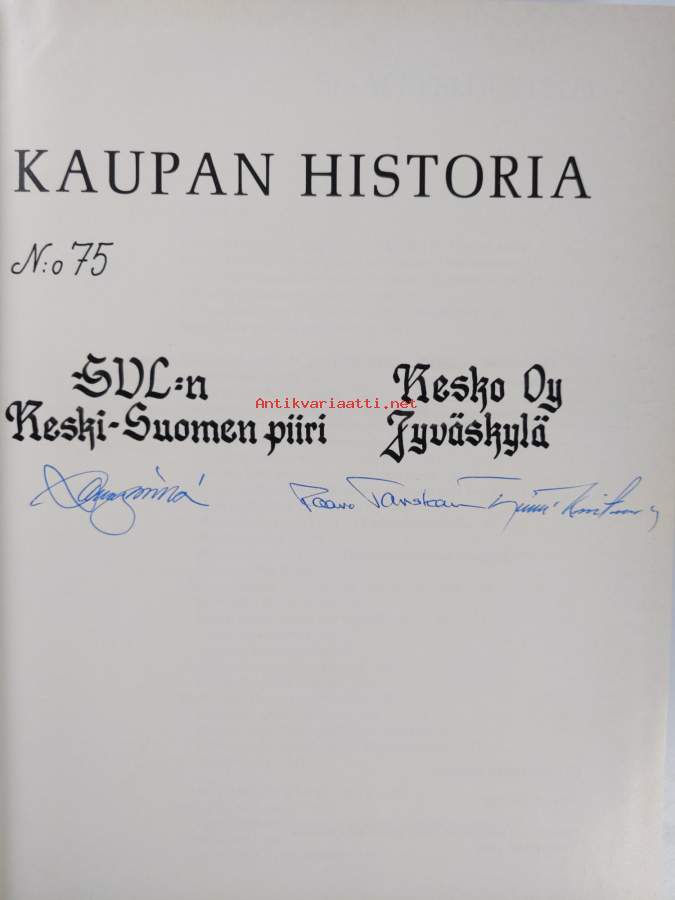 KAUPAN HISTORIA
N:o 75
SVL:n
Keski-Suomen piiri
Kesko Oy
Jyväskylä
Antikvariaatti.net
Paavo